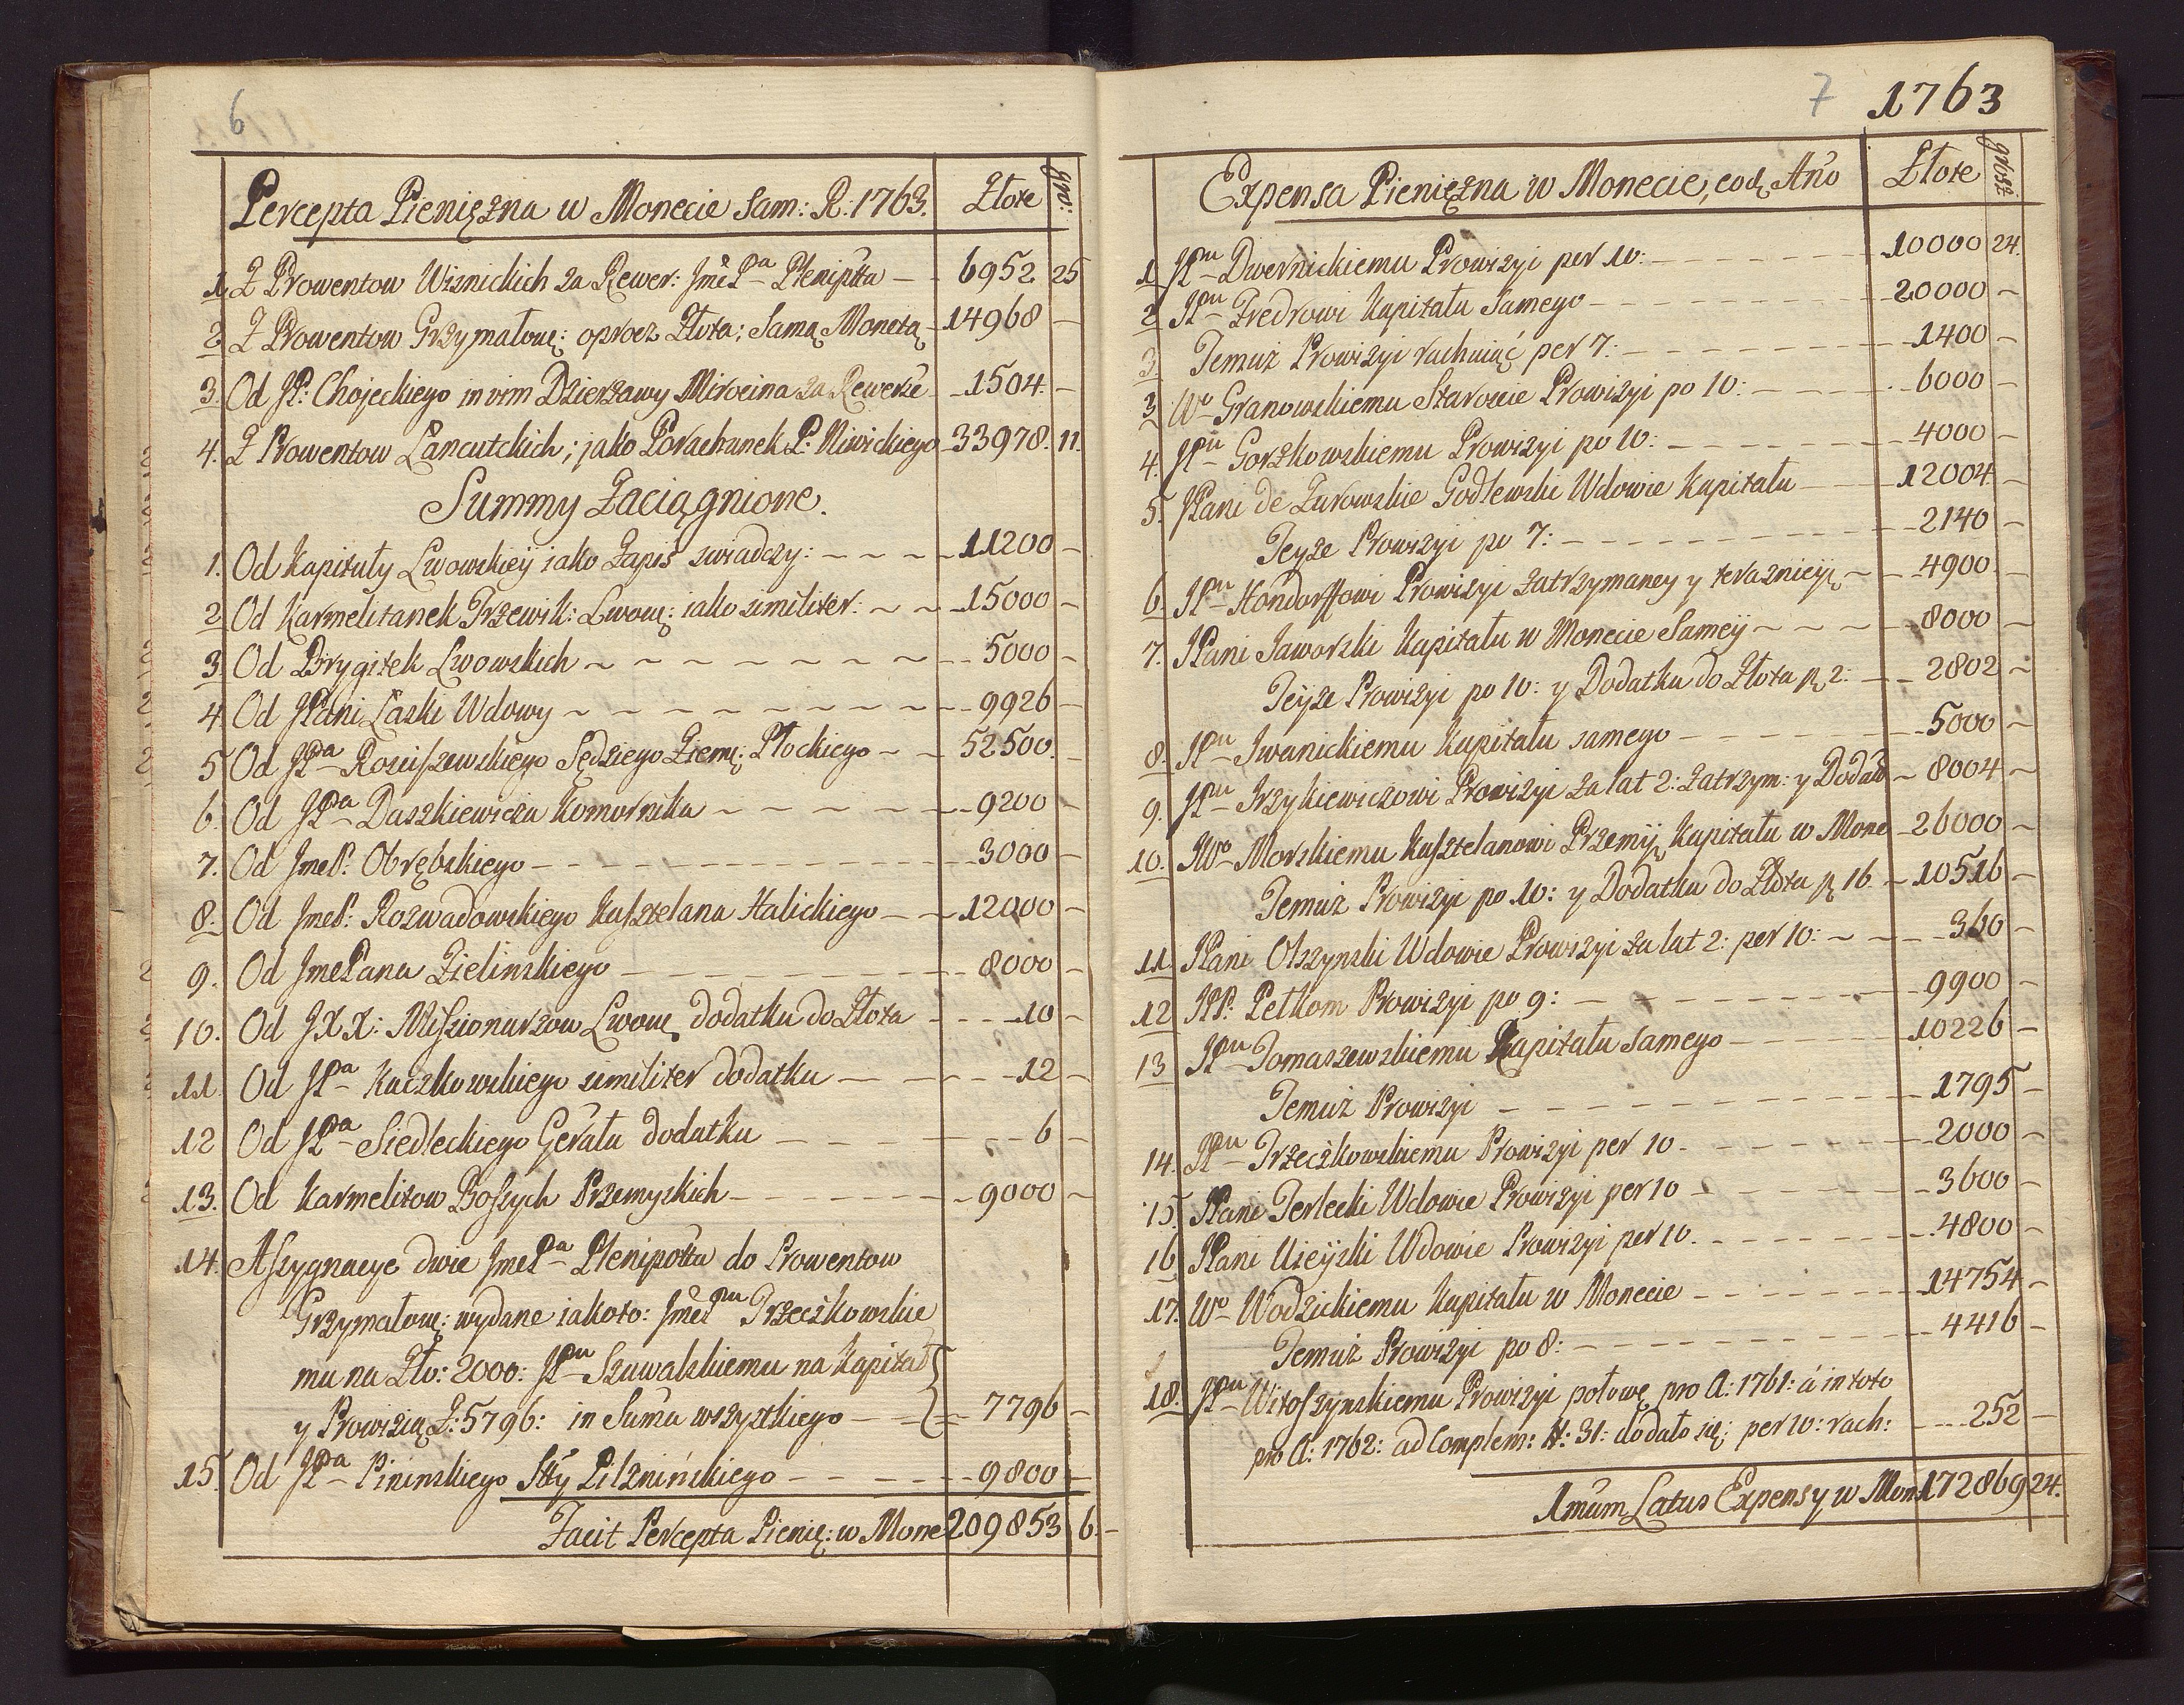 6
Percepta Pieniężna w Monecie Sam: R: 1763. Złote gro:
1. Z Prowentow Wisnickich za Rewer: JmćPa Pleniptta 6952 25
2. Z Prowentow Grzymałow: oprocz Złota; Samą Monetą 14968
3. Od JP: Chojeckiego in vim Dzierżawy Mirocina za Rewerse 1504.
4. Z Prowentow Łancutckich; jako Porachunek P: Niwickiego 33978. 11.
Summy Zaciągnione.
1. Od Kapituły Lwowskiey iako Zapis swiadczy: 11200
2. Od Karmelitanek Trzewik: Lwow: iako similiter: 15000
3. Od Brygitek Lwowskich 5000
4 Od JPani Laski Wdowy 9926
5 Od JPa Rosciszewskiego Sędziego Ziem: Płockiego 52500.
6. Od JPa Daszkiewicza Komornika 9200
7. Od JmcP: Obrębskiego 3000
8. Od JmcP: Rozwadowskiego Kasztelana Halickiego 12000
9. Od JmcPana Zielinskiego 8000
10. Od JXX: Missionarzow Lwow: dodatku do Złota 10
11 Od JPa Kaczkowskiego similiter dodatku 12
12 Od JPa Siedleckiego Geratu dodatku 6
13. Od Karmelitow Bossych Przemyskich 9000
14. Assygnacye dwie JmcPa Plenipotta do Prowentow
Grzymałow: wydane iako to: JmcPu Trzeczkowskie
mu na Zło: 2000: JPu Szuwalskiemu na Kapitał
y Prowizią Z: 5796: in Suma wszystkiego 7796
15. Od JPa Pininskiego Stty Pilznińskiego 9800
Facit Percepta Pienię: w Mone 209853 6.
7 1763
Expensa Pieniężna w Monecie, eod Año Złote grosz
1 JPu Dwernickiemu Prowizyi per 10: 10000 24.
2 JPu Fredrowi Kapitału Samego 20000
3 Temuż Prowizyi rachuiąc per 7: 1400
3 Wo Granowskiemu Staroscie Prowizyi po 10: 6000
4. JPu Gorzkowskiemu Prowizyi po 10: 4000
5. JPani de Żurowskie Godlewski Wdowie Kapitału 12004
Teyże Prowizyi po 7: 2140
6. JPu Hondorffowi Prowizyi zatrzymaney y teraznieyę 4900
7. JPani Jaworski Kapitału w Monecie Samey 8000
Teyże Prowizyi po 10: y Dodatku do Złota p 2: 2802
8. JPu Jwanickiemu Kapitału samego 5000
9. JPu Jrzykiewiczowi Prowizyi za lat 2: zatrzym: y Dodat 8004
10. JWo Morskiemu Kasztelanowi Przemy: Kapitału w Mone 26000
Temuż Prowizyi po 10: y Dodatku do Złota p 16 10516
11 JPani Olszynski Wdowie Prowizyi za lat 2: per 10: 360
12 JPP: Pełkom Prowizyi po 9: 9900
13 JPu Tomaszewskiemu Kapitału samego 10226
Temuż Prowizyi 1795
14. JPu Trzeczkowskiemu Prowizyi per 10 2000
15. JPani Terlecki Wdowie Prowizyi per 10 3600
16 JPani Uieyski Wdowie Prowizyi per 10. 4800
17. Wo Wodzickiemu Kapitału w Monecie 14754
Temuż Prowizyi po 8: 4416
18. JPu Witoszynskiemu Prowizyi połowę pro A: 1761: á in toto
pro A: 1762: ad Complem: #: 31: dodało się; per 10: rach: 252
1mum Latus Expensy w Mon 172869 24.